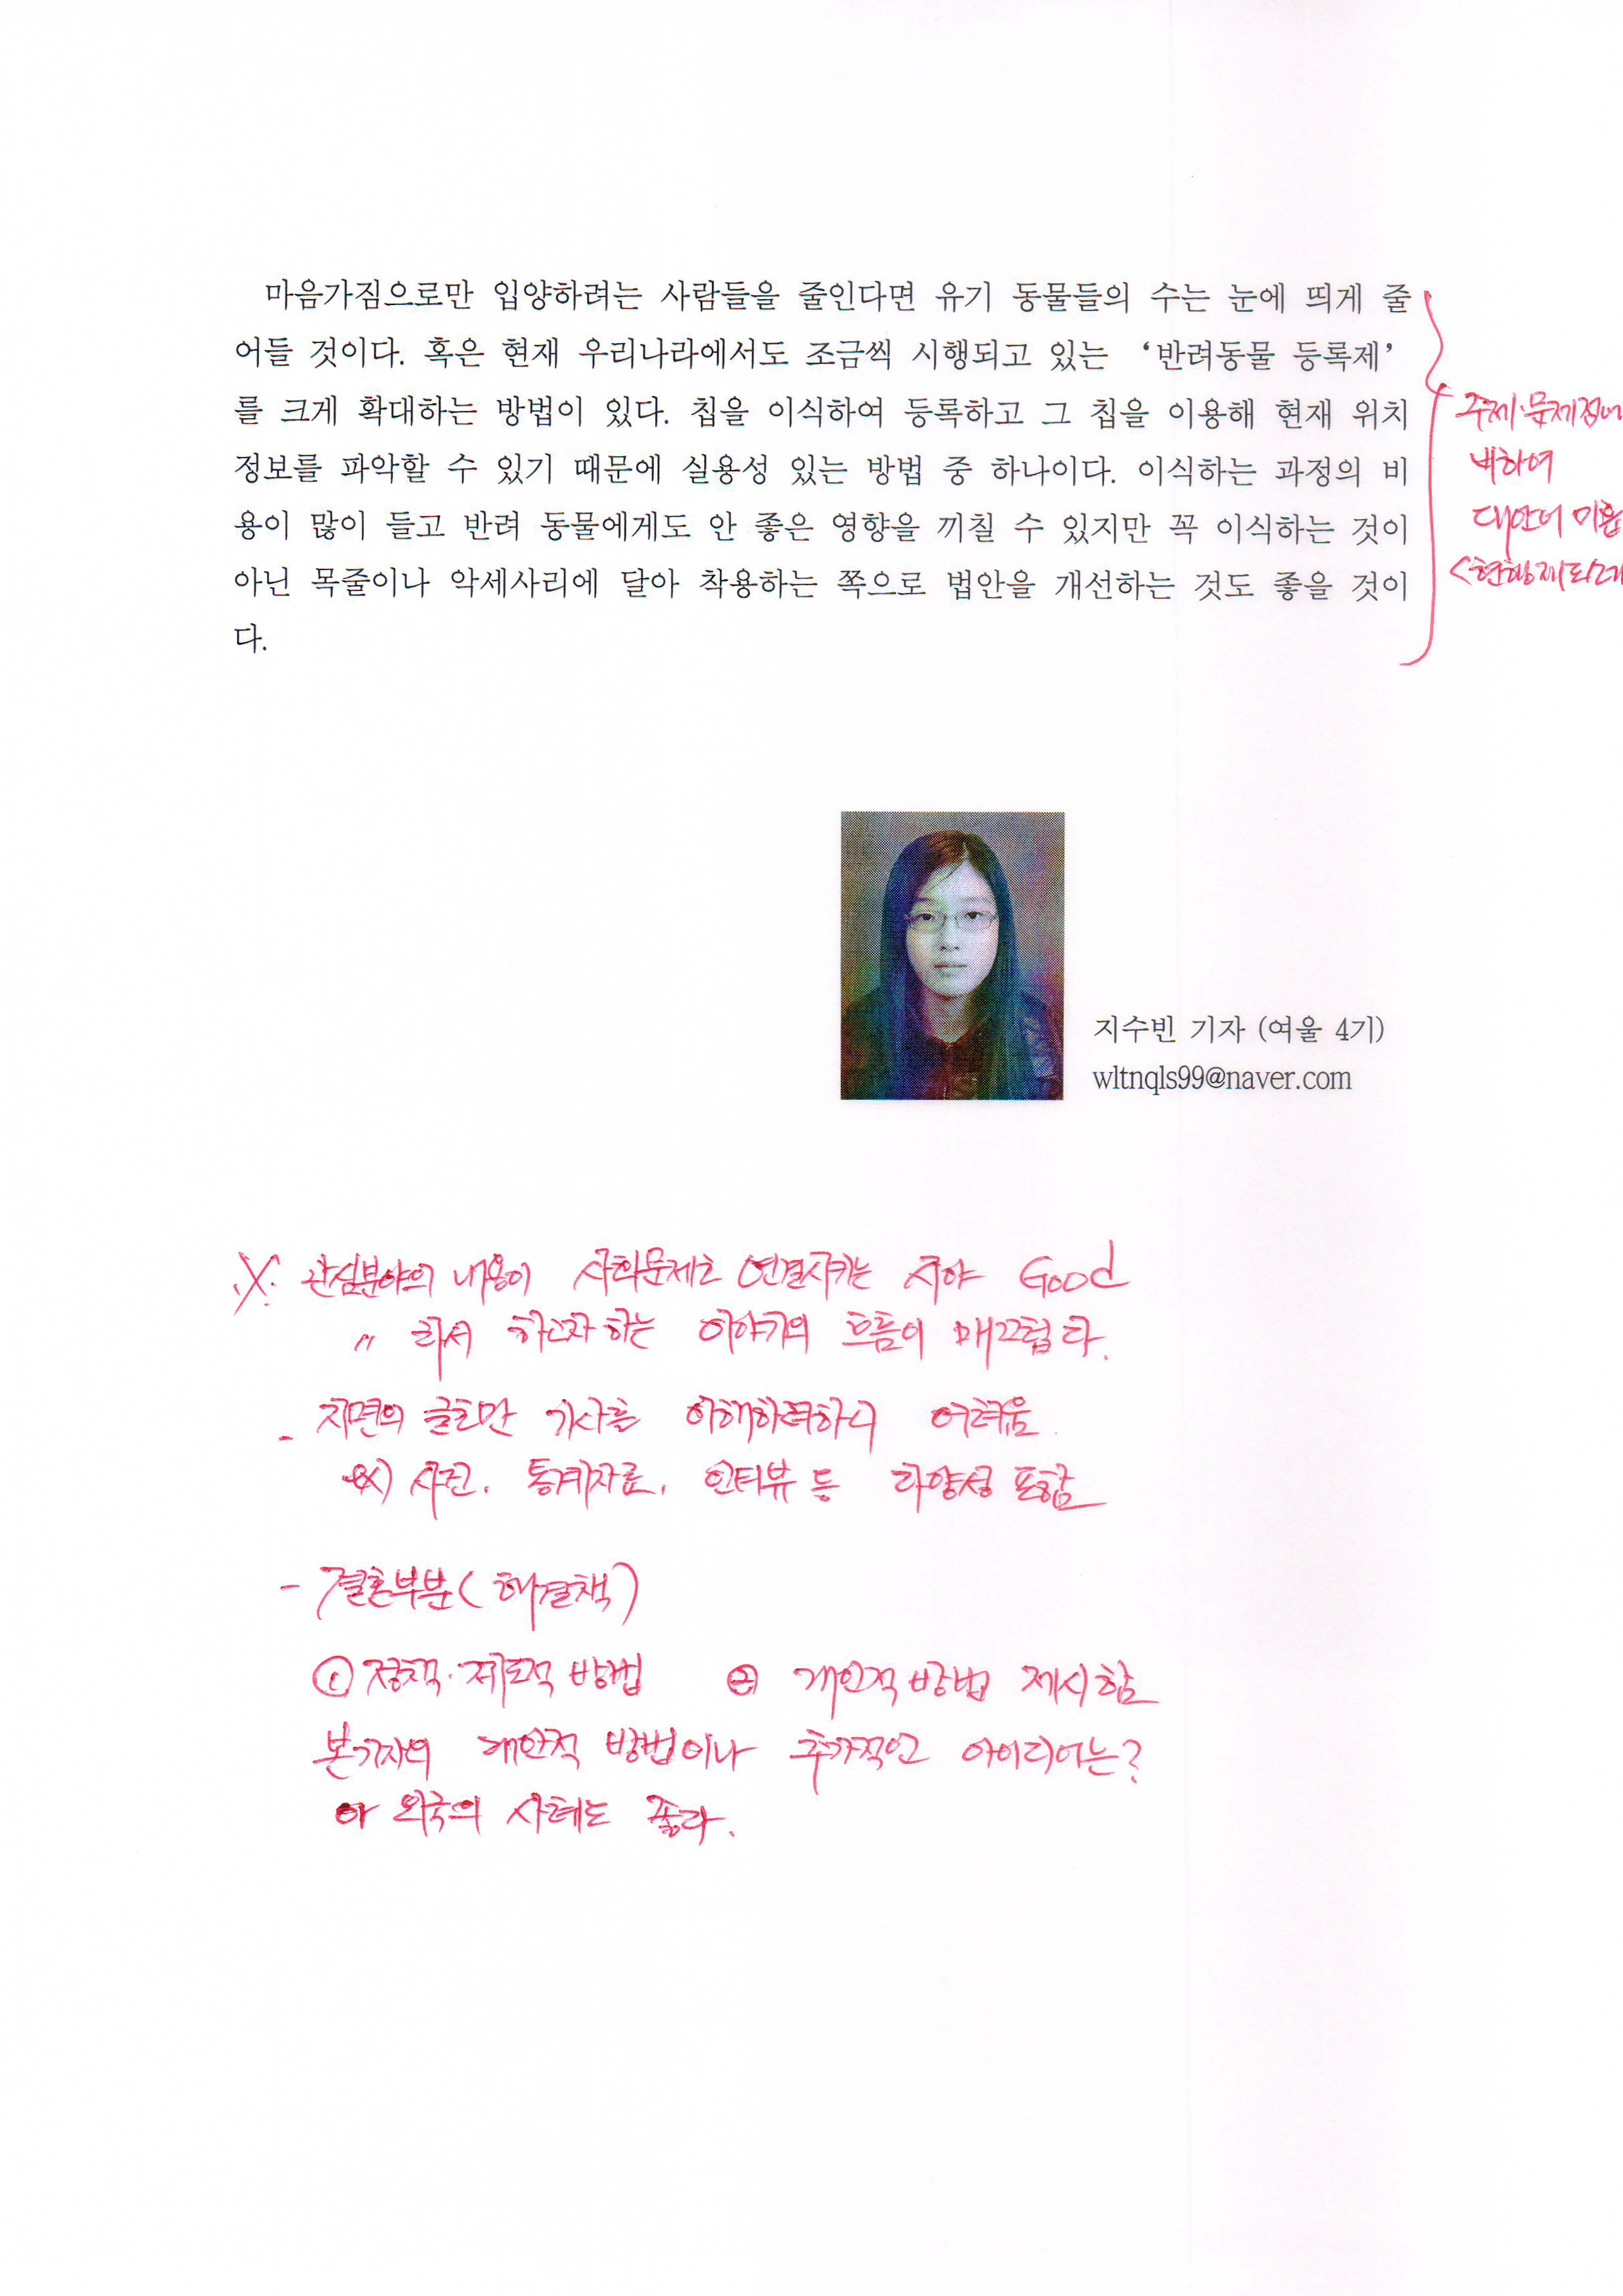 마음가짐으로만 입양하려는 사람들을 줄인다면 유기 동물들의 수는 눈에 띄게 줄
어들 것이다. 혹은 현재 우리나라에서도 조금씩 시행되고 있는 ‘반려동물 등록제’
를 크게 확대하는 방법이 있다. 칩을 이식하여 등록하고 그 칩을 이용해 현재 위치
정보를 파악할 수 있기 때문에 실용성 있는 방법 중 하나이다. 이식하는 과정의 비
용이 많이 들고 반려 동물에게도 안 좋은 영향을 끼칠 수 있지만 꼭 이식하는 것이
아닌 목줄이나 악세사리에 달아 착용하는 쪽으로 법안을 개선하는 것도 좋을 것이
다.
주제·문제점에
비하여
대안이 미흡
지수빈 기자 (여울 4기)
wltnqls99@naver.com
※ 관심분야의 내용이 사회문제로 연결시키는 시야 Good
〃 라서 하고자 하는 이야기의 흐름이 매끄럽다.
- 지면의 글로만 기사를 이해하려하니 어려움
ex) 사진, 통계자료, 인터뷰 등 다양성 포함
- 결론부분(해결책)
① 정책·제도적 방법 ② 개인적 방법 제시함
본기자의 개인적 방법이나 추가적인 아이디어는?
외국의 사례도 좋다.